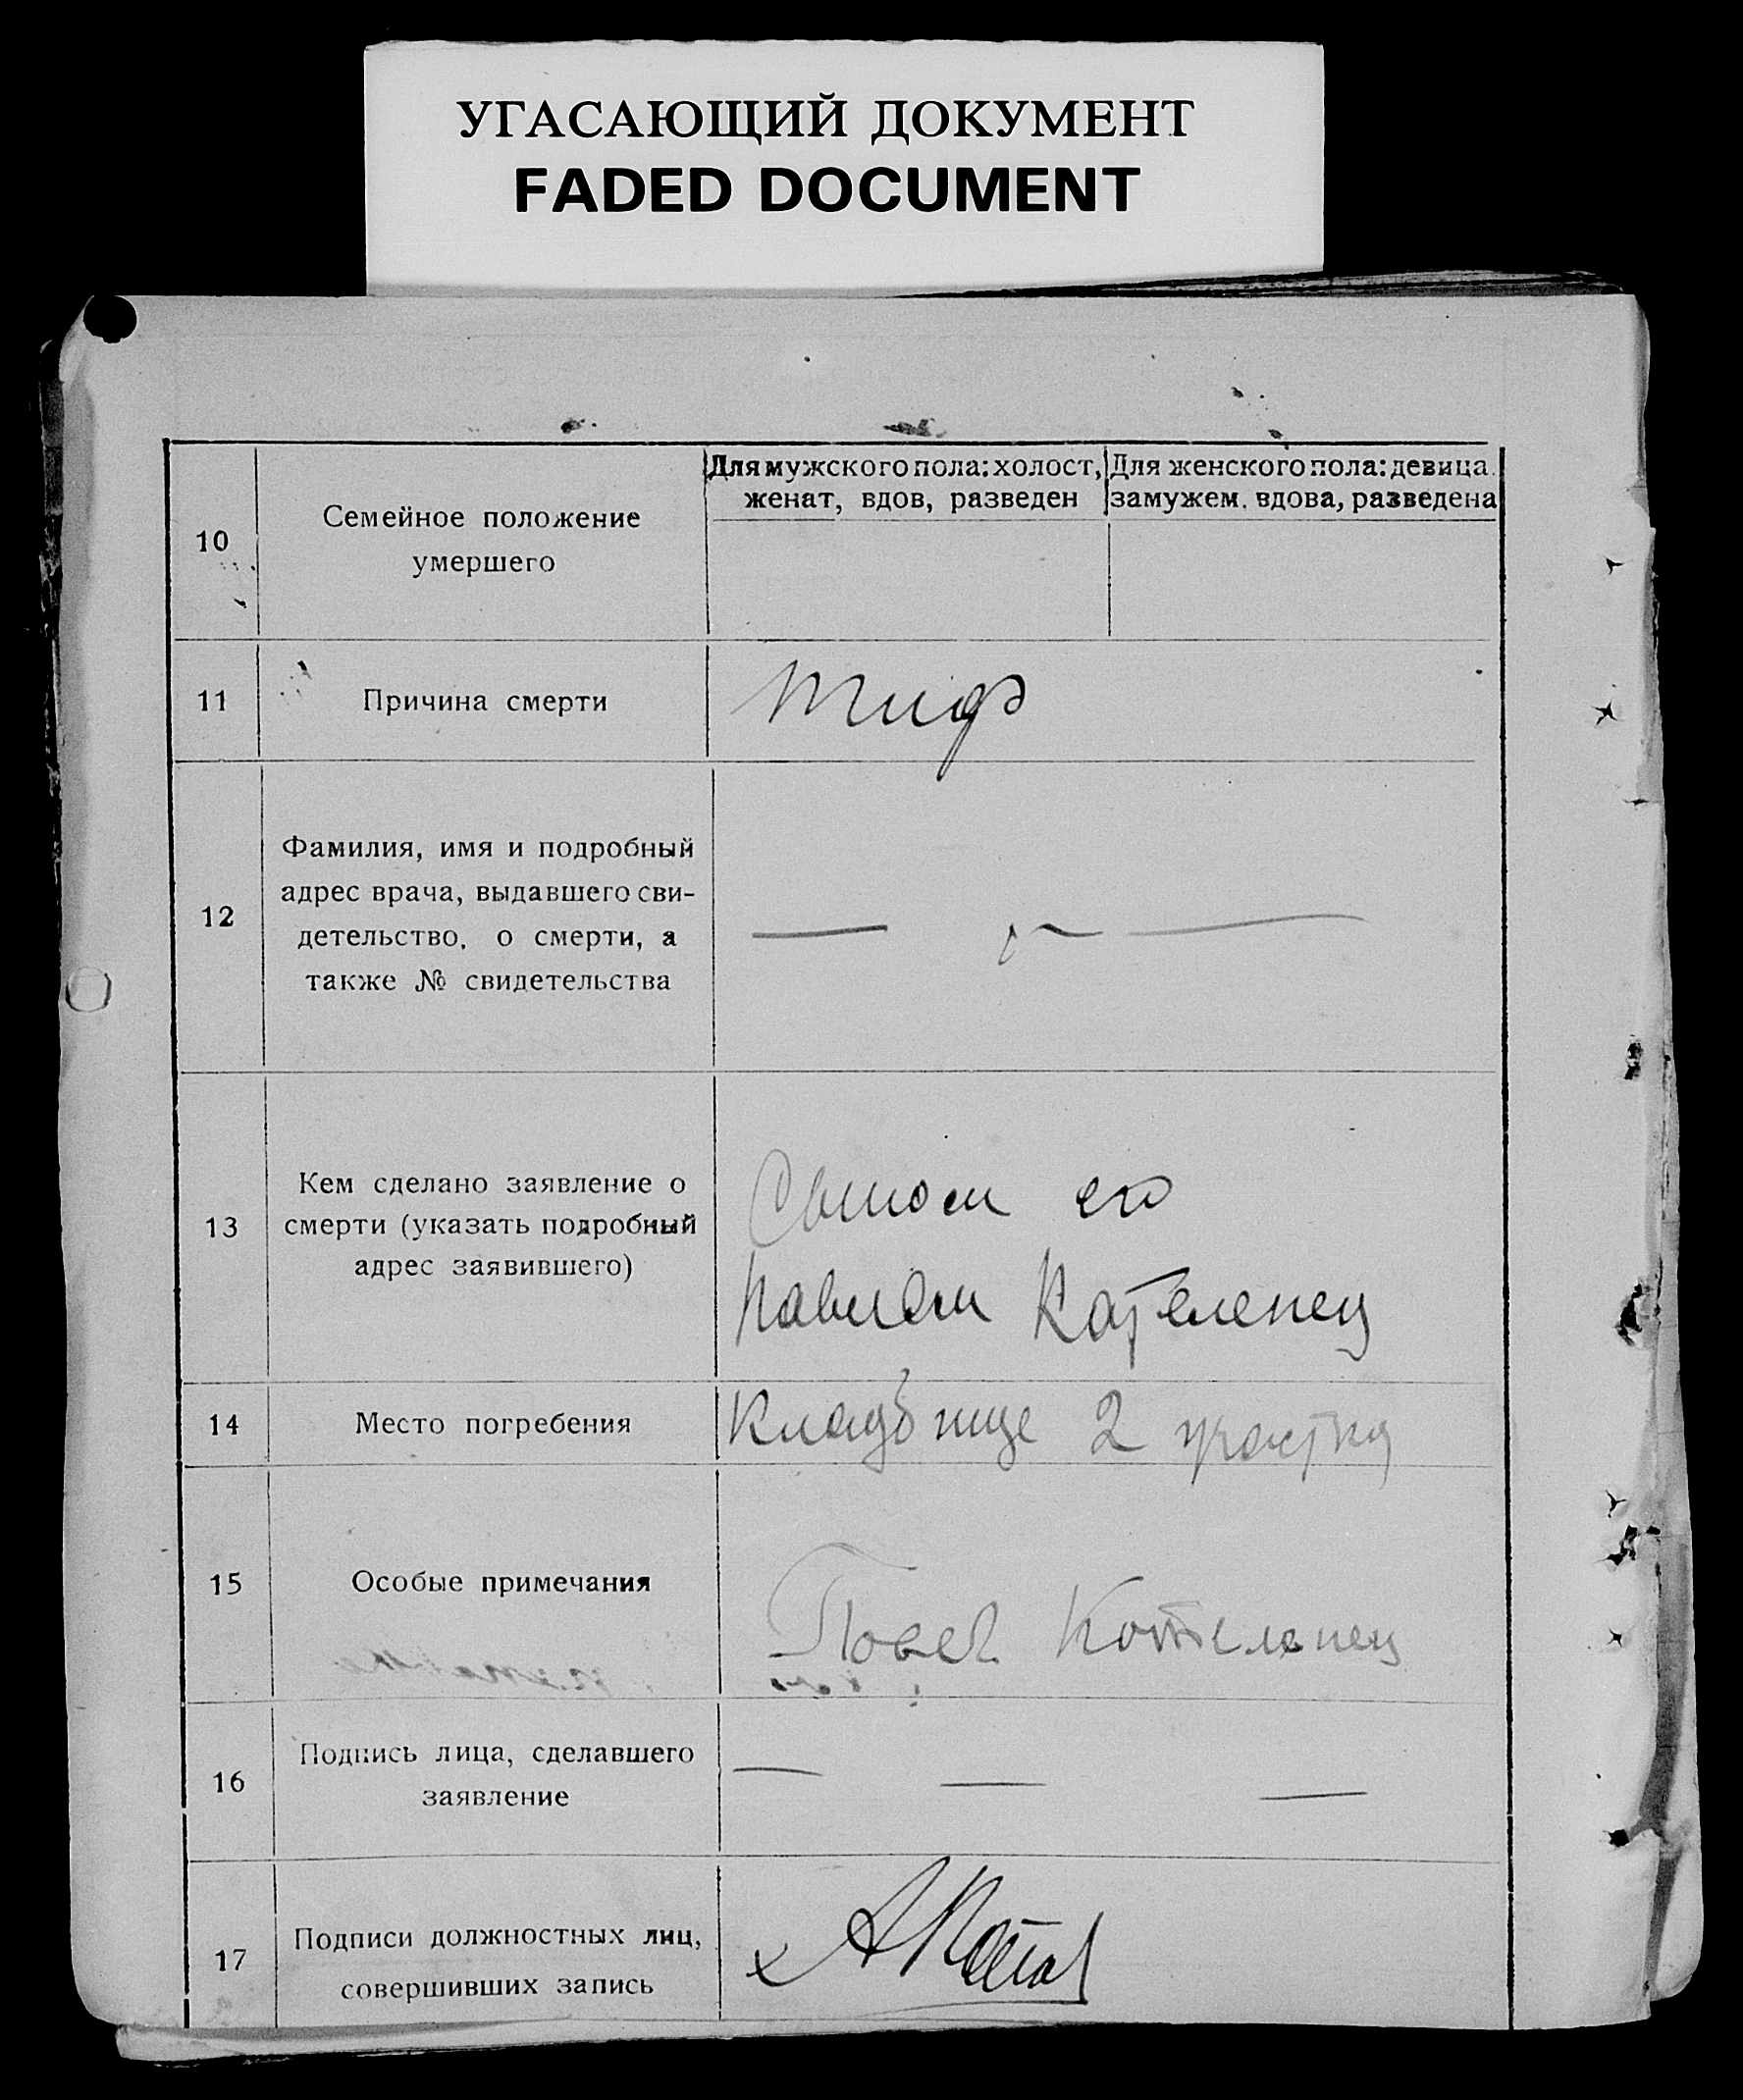 УГАСАЮЩИЙ ДОКУМЕНТ
FADED DOCUMENT
10
Семейное положение
умершего
Для мужского пола: холост,
женат, вдов, разведен
Для женского пола: девица.
замужем. вдова, разведена
11
Причина смерти
тиф
12
Фамилия, имя и подробный
адрес врача, выдавшего сви-
детельство, о смерти, а
также № свидетельства
13
Кем сделано заявление о
смерти (указать подробный
адрес заявившего)
Сыном его
Павлом Кателенец
14
Место погребения
Кладбище 2 участка
15
Особые примечания
Котеленец
16
Подпись лица, сделавшего
заявление
17
Подписи должностных лиц,
совершивших запись